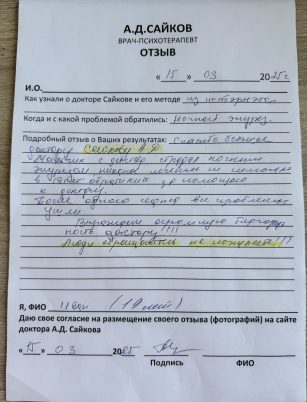 А.Д.САЙКОВ
ВРАЧ-ПСИХОТЕРАПЕВТ
ОТЗЫВ
« 15 » 03 2025г.
И.О.
Как узнали о докторе Сайкове и его методе из интернета
Когда и с какой проблемой обратились: Ночной энурез
Подробный отзыв о Ваших результатах: Спасибо большое
доктору Сайкову А.Д.
с детства страдал ночным
энурезом лечения не
в обратились за помощью
к доктору.
После одного сеанса все проблемы
ушли
Выражаем огромную благодар
ность доктору!!!
Люди обращайтесь не пожалеете!!!
Я, ФИО (19 лет)
Даю свое согласие на размещение своего отзыва (фотографий) на сайте
доктора А.Д. Сайкова
« 15 » 03 2025
Подпись ФИО